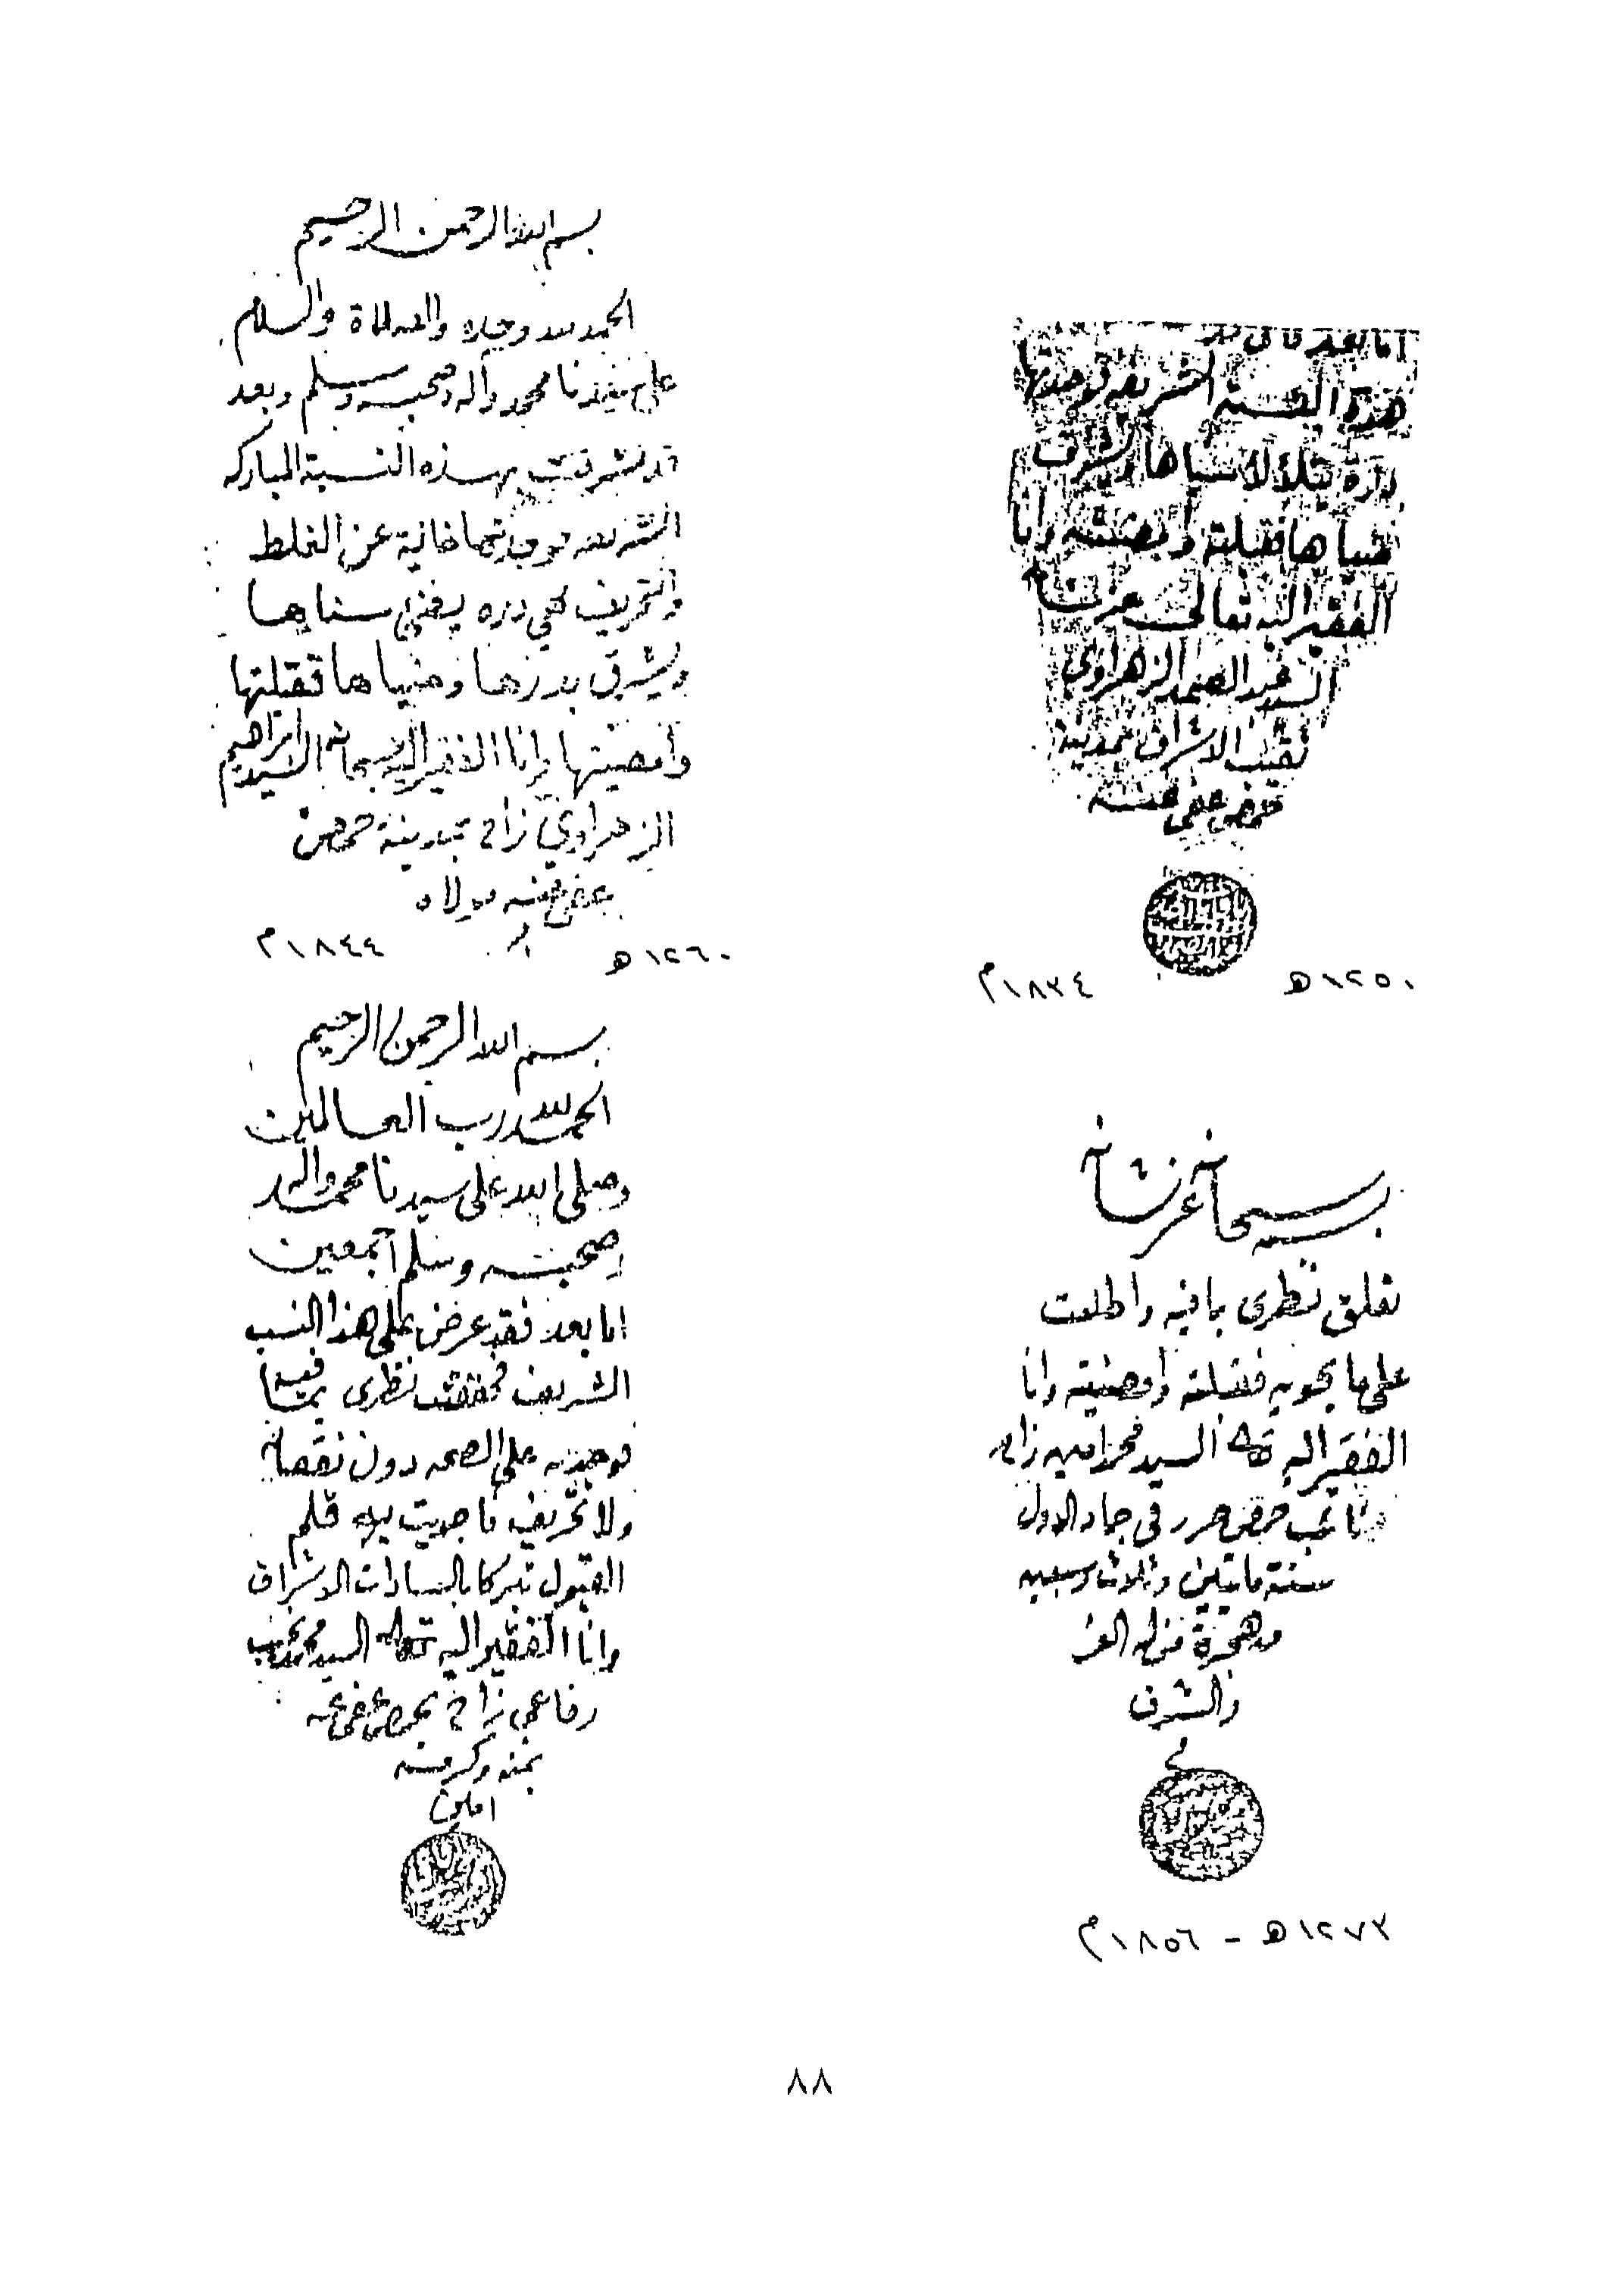 اما بعد فاني قد
هذه النسبة الشريفة فوجدتها
درة يتلألأ سناها ويشرق
ضياها فقبلته وأمضيته وانا
الفقير اليه تعالى عز شأنه
السيد عبد الصمد الزهراوي
نقيب الاشراف بمدينة
حمص عفي عنه
١٢٥٠ هـ ١٨٣٤ م
بسم الله الرحمن الرحيم
الحمد لله وحده والصلاة والسلام
على سيدنا محمد وآله وصحبه وسلم وبعد
قد تشرفت بهذه النسبة المباركه
الشريفه فوجدتها خالية عن الغلط
والتحريف فهي دره يضئ سناها
ويشرق بدرها وضياها فقبلتها
وأمضيتها وانا الفقير اليه سبحانه السيد ابراهيم
الزهراوي زاده بمدينة حمص
عفي عنه مولاه
١٢٦٠ هـ ١٨٤٤ م
بسم سبحانه عز شانه
تعلق نظري بما فيه واطلعت
على ما يحويه فقبلته وامضيته وانا
الفقير اليه تعالى السيد محمد امين زاده
نائب حمص حرر في جماد الاول
سنة مايتين وثلاث وسبعين
من هجرة من له العز
والشرف
١٢٧٣ هـ - ١٨٥٦ م
بسم الله الرحمن الرحيم
الحمد لله رب العالمين
وصلى الله على سيدنا محمد واله
وصحبه وسلم اجمعين
اما بعد فقد عرض على هذا النسب
الشريف فحققت نظري بما فيه
فوجدته على الصحه دون نقصان
ولا تحريف فاجريت يه قلم
القبول تبركا بالسادات الاشراف
وانا الفقير اليه تعالى السيد محمد نجيب
رفاعي زاده بحمص عفي عنه
بمنه وكرمه
امين
٨٨